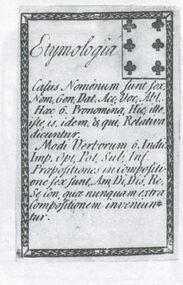 Etymologia
Casus Nominum sunt sex,
Nom, Gen, Dat, Acc, Voc, Abl.
Hæc 6. Pronomina, Hic, ille,
iste, is, idem, & qui, Relativa
dicuntur.
Modi Verborum 6. Indi,
Imp. Opt, Pot, Sub, Inf.
Præpositiones in compositi-
one sex sunt, Am, Di, Dis, Re,
Se, con, quæ nunquam extra
Compositionem inveniun-
tur.